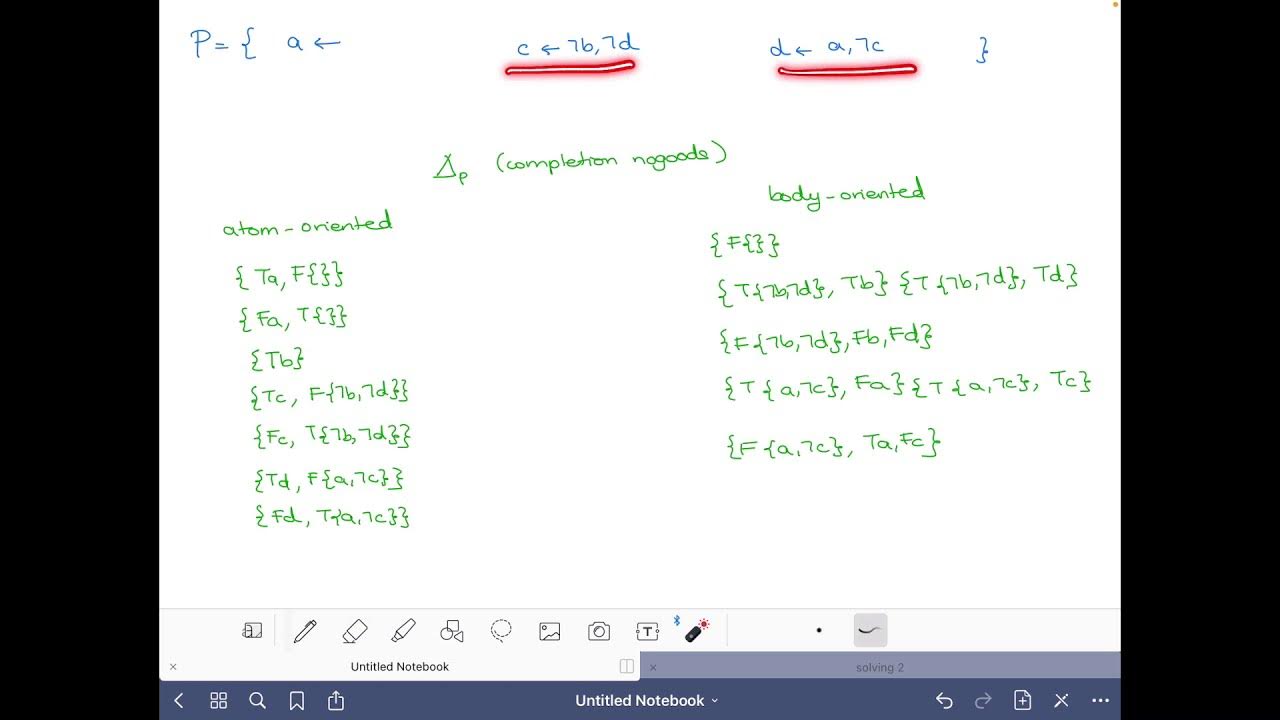 P = { a ← c ← ¬b,¬d d ← a,¬c }
Δp (completion nogoods)
atom-oriented
{Ta, F{}}
{Fa, T{}}
{Tb}
{Tc, F{¬b,¬d}}
{Fc, T{¬b,¬d}}
{Td, F{a,¬c}}
{Fd, T{a,¬c}}
body-oriented
{F{}}
{T{¬b,¬d}, Tb} {T{¬b,¬d}, Td}
{F{¬b,¬d}, Fb, Fd}
{T{a,¬c}, Fa} {T{a,¬c}, Tc}
{F{a,¬c}, Ta, Fc}
T
Untitled Notebook
solving 2
Untitled Notebook